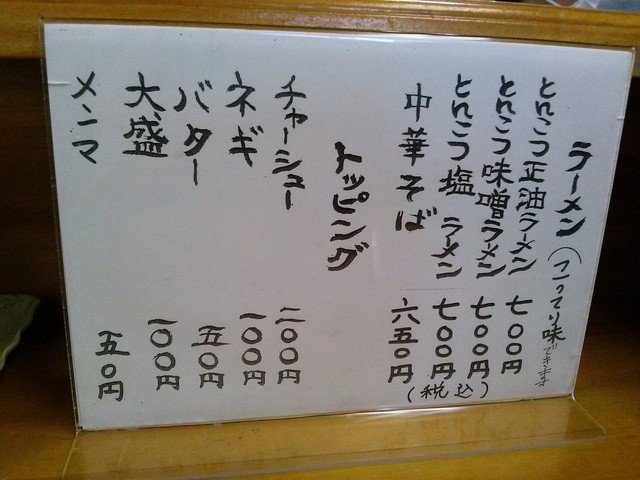 ラーメン(こってり味できます)
とんこつ正油ラーメン 七〇〇円
とんこつ味噌ラーメン 七〇〇円
とんこつ塩ラーメン 七〇〇円
中華そば 六五〇円
(税込)
トッピング
チャーシュー 二〇〇円
ネギ 一〇〇円
バター 五〇円
大盛 一〇〇円
メンマ 五〇円